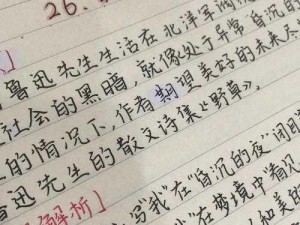 26.
】
鲁迅先生生活在北洋军阀
社会的黑暗,就像处于异常昏沉的
的情况下,作者期望美好的未来尽
鲁迅先生的散文诗集《野草》,
解析】
写"我"在"昏沉的夜"闭目
"在梦境中"看见
和美的